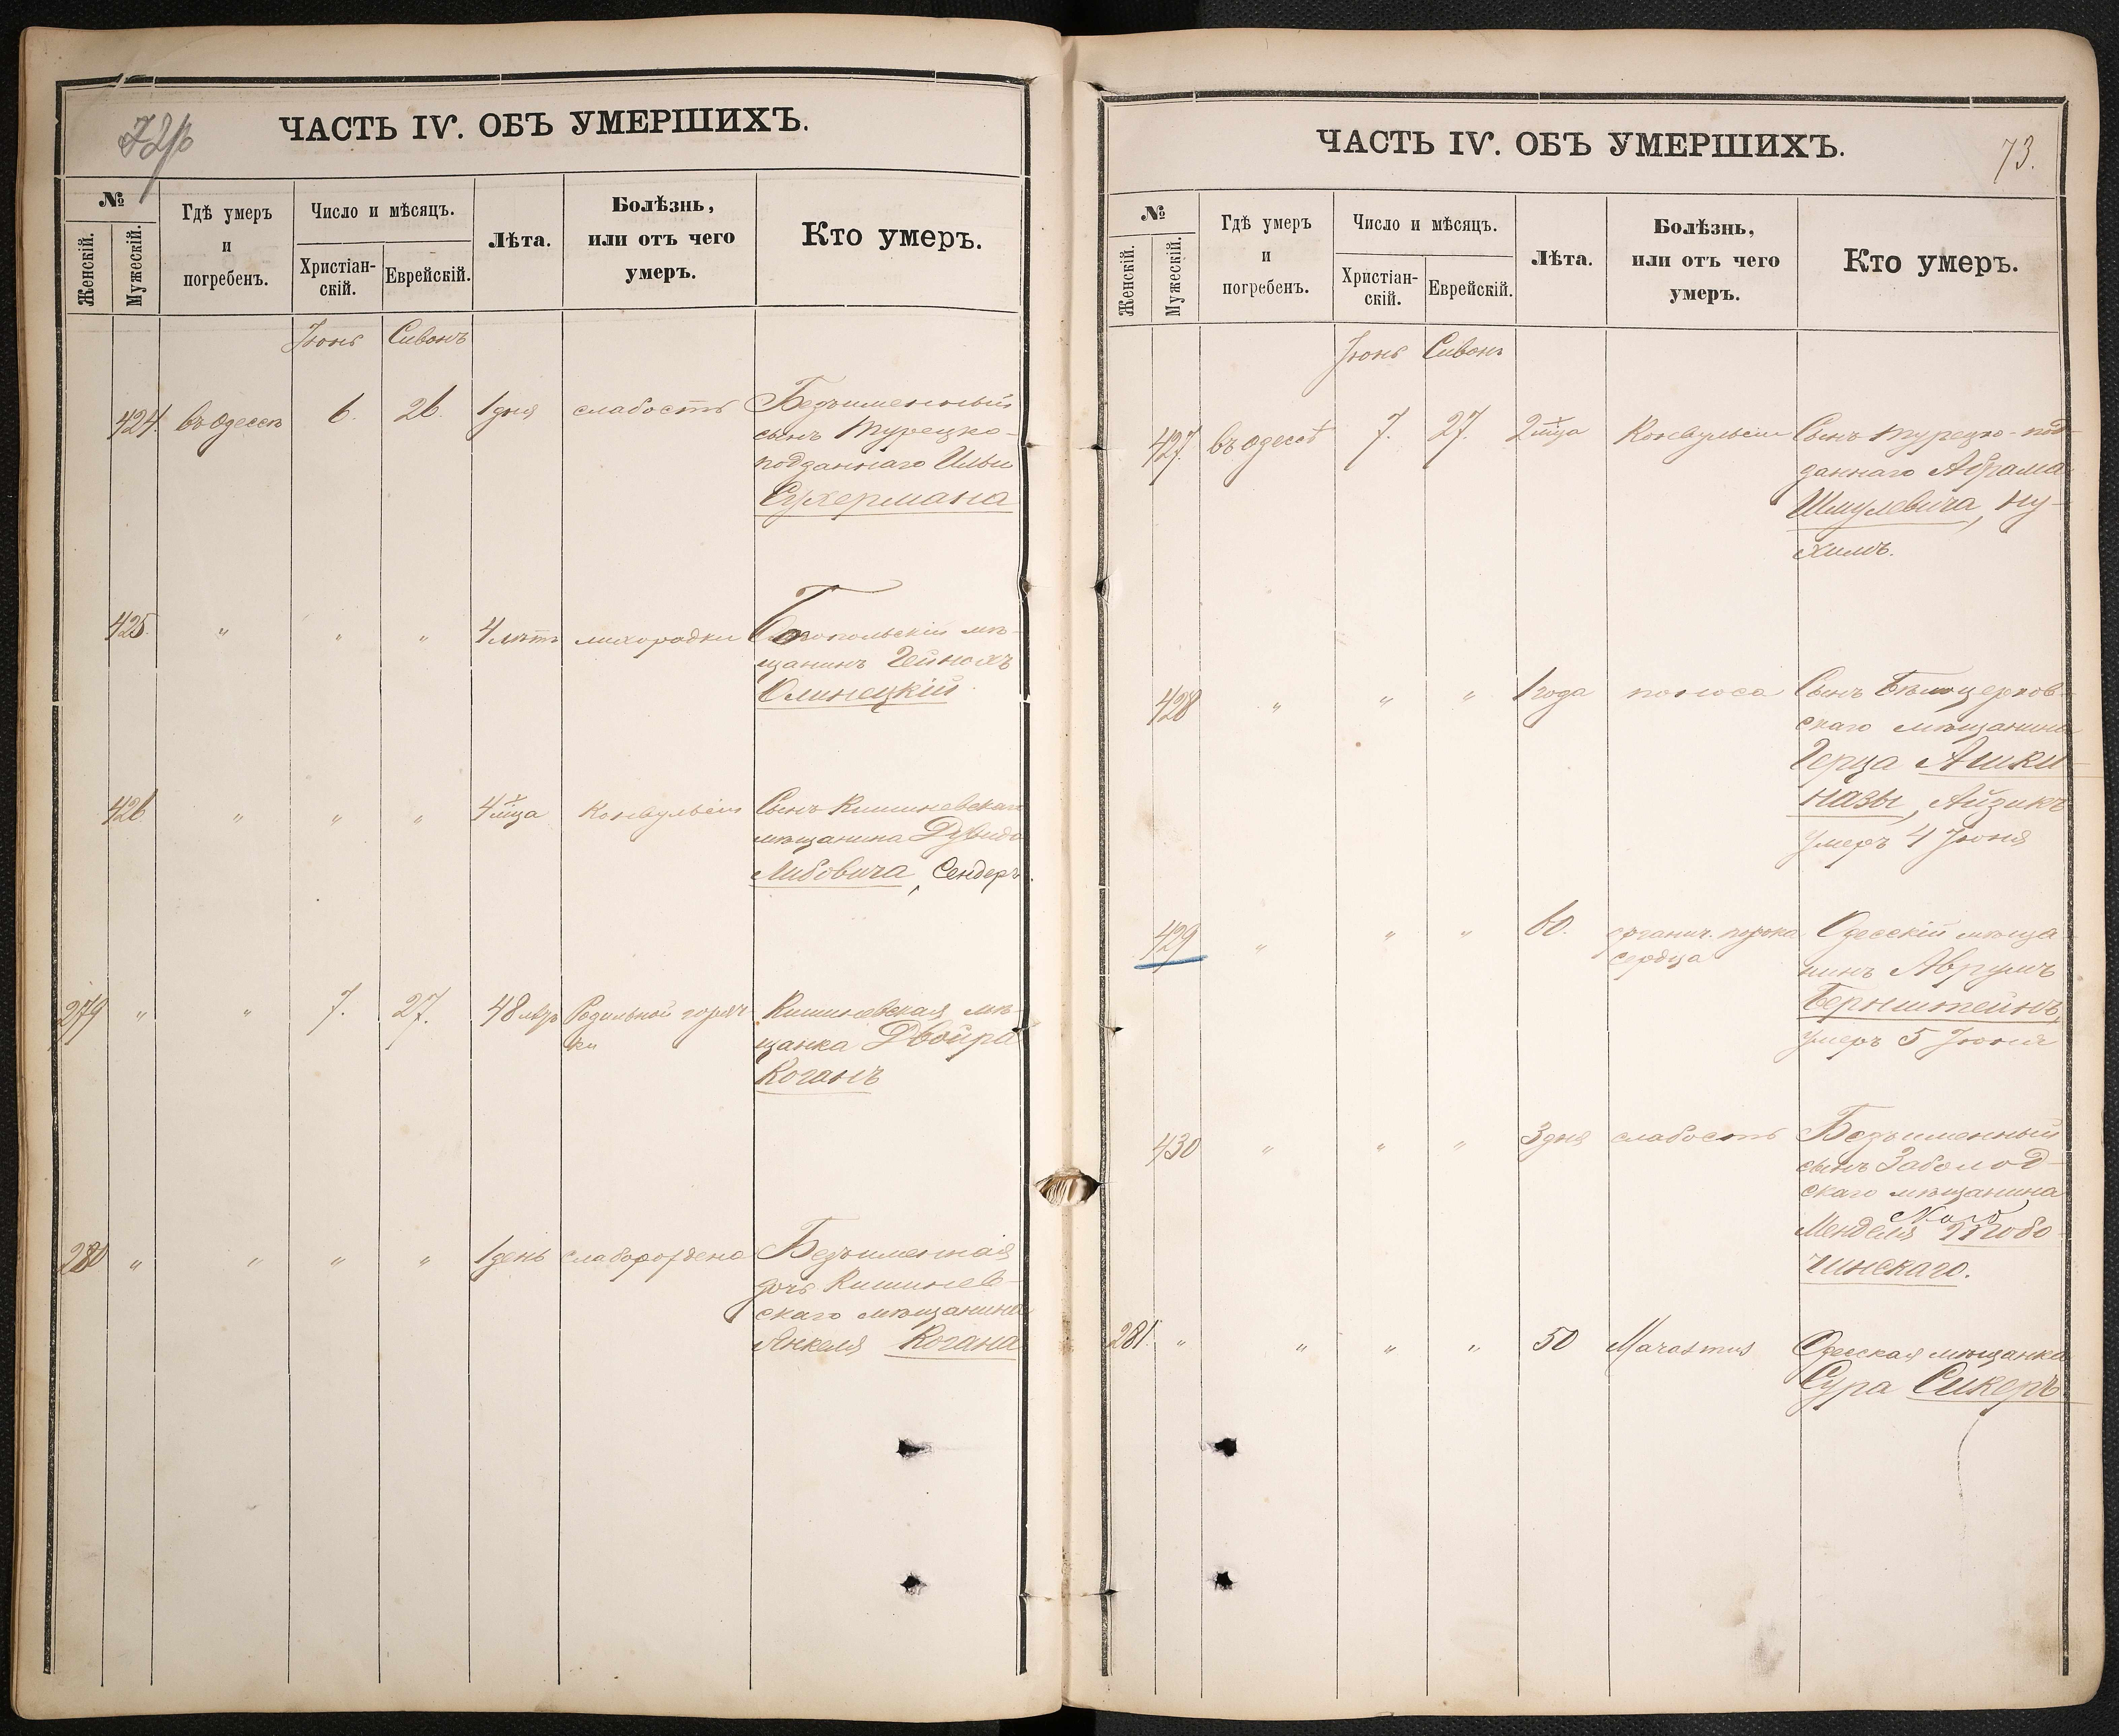 ЧАСТЬ IV. ОБЪ УМЕРШИХЪ.
№
Женскій.
Мужескій.
Гдѣ умеръ
и
погребенъ.
Число и мѣсяцъ.
Христіан-
скій.
Еврейскій.
Лѣта.
Болѣзнь,
или отъ чего
умеръ.
Кто умеръ.
Іюнь Сивонъ
424. въ Одессѣ 6. 26. 1 дня слабость Безъименный
сынъ Турецко-
подданнаго Ильи
Сухермана
425. " " " 4 лѣтъ лихорадки мѣ-
щанинъ Гейнохъ
Олинецкій
426 " " " 4 мца Конвульсіи Сынъ Кишиневскаго
мѣщанина Дувида
Либовича, Сендеръ.
279 " " 7. 27. 48 Родильной горяч-
ки
Кишиневская мѣ-
щанка Двойра
Коганъ
280 " " " " 1 день слаборождена Безъименная
дочь Кишинев-
скаго мѣщанина
Янкеля Когана
ЧАСТЬ IV. ОБЪ УМЕРШИХЪ.
73.
№
Женскій.
Мужескій.
Гдѣ умеръ
и
погребенъ.
Число и мѣсяцъ.
Христіан-
скій.
Еврейскій.
Лѣта.
Болѣзнь,
или отъ чего
умеръ.
Кто умеръ.
Іюнь Сивонъ
427. въ Одессѣ 7. 27. 2 мца Конвульсіи Сынъ турецко-под-
даннаго Абрама
Шмулевича, Ну-
химъ.
428 " " " 1 года поноса Сынъ Бѣлоцерков-
скаго мѣщанина
Герца Ашки-
назы, Айзикъ
умеръ 4 Іюня
429 " " " 60. органич. порока
сердца
Одесскій мѣща
нинъ Аврумъ
Бернштейнъ,
умеръ 5 Іюня
430 " " " 3 дня слабость Безъименный
сынъ Заболод-
скаго мѣщанина
Менделя
чинскаго.
281. " " " " 50 Marasmus Одесская мѣщанка
Сура Сикеръ